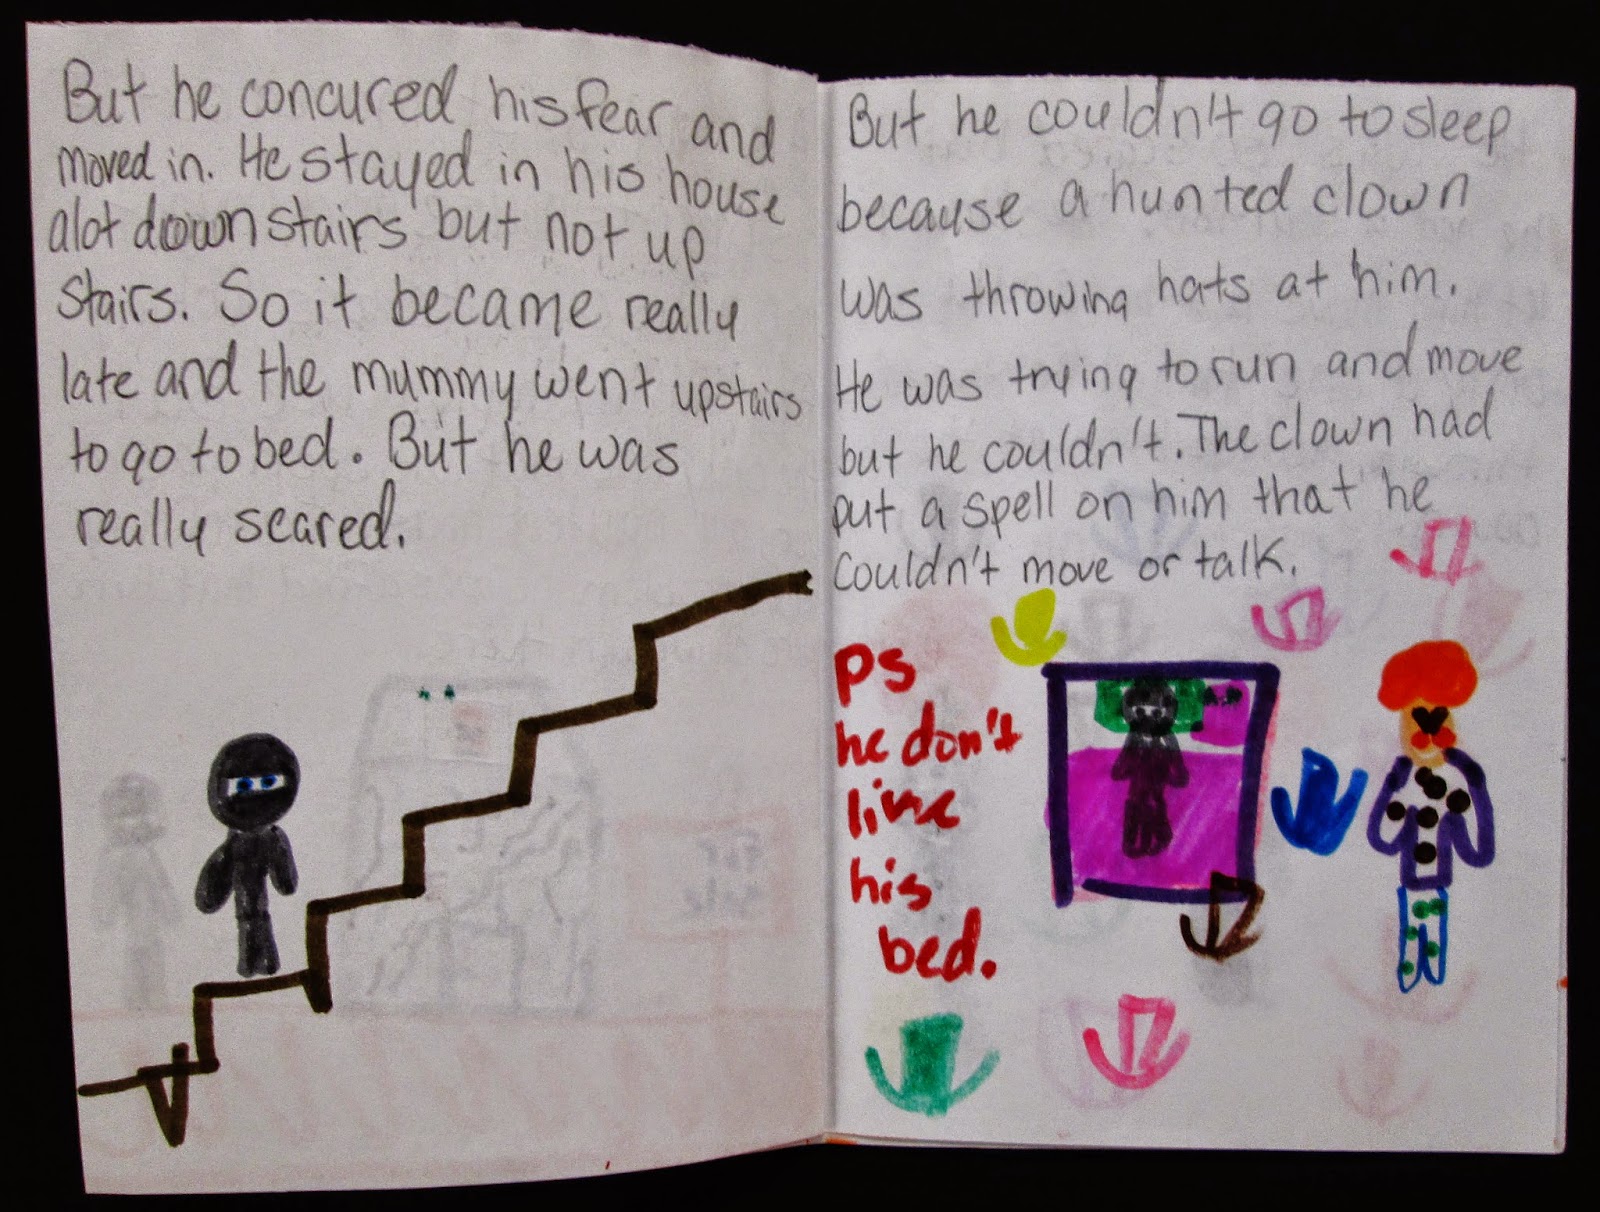 But he concured his fear and
moved in. He stayed in his house
alot down stairs but not up
stairs. So it became really
late and the mummy went upstairs
to go to bed. But he was
really scared.
But he couldn't go to sleep
because a hunted clown
was throwing hats at him.
He was trying to run and move
but he couldn't. The clown had
put a spell on him that he
couldn't move or talk.
ps
he don't
like
his
bed.